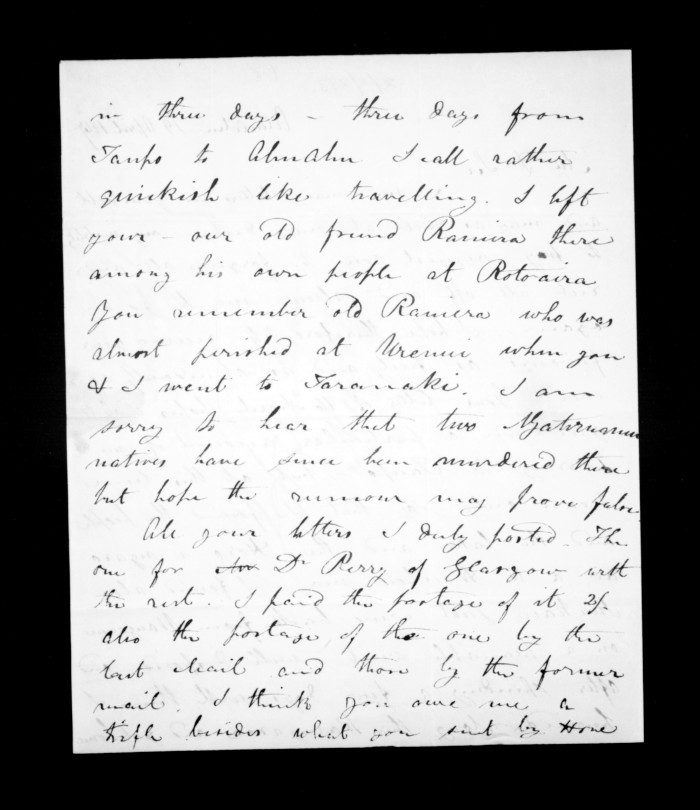 in three days – three days from
Taupo to Ahuahu I call rather
quickish like travelling. I left
your – our old friend Raniera there
among his own people at Rotoaira
You remember old Raniera who was
almost perished at Urenui when you
& I went to Taranaki. I am
sorry to hear that two Ngatiruanui
natives have since been murdered there
but hope the rumour may prove false.
All your letters I duly posted. The
one for Dr Perry of Glasgow with
the rest. I paid the postage of it 2/-
also the postage of the one by the
last Mail and those by the former
mail. I think you owe me a
trifle besides what you sent by Hone